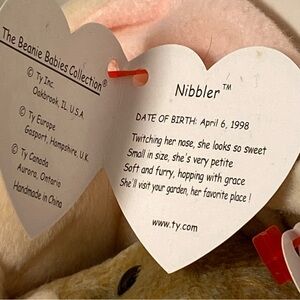 The Beanie Babies Collection®
© Ty Inc.
Oakbrook, IL U.S.A.
© Ty Europe
Gasport, Hampshire, U.K.
© Ty Canada
Aurora, Ontario
Handmade in China
Nibbler™
DATE OF BIRTH: April 6, 1998
Twitching her nose, she looks so sweet
Small in size, she's very petite
Soft and furry, hopping with grace
She'll visit your garden, her favorite place !
www.ty.com